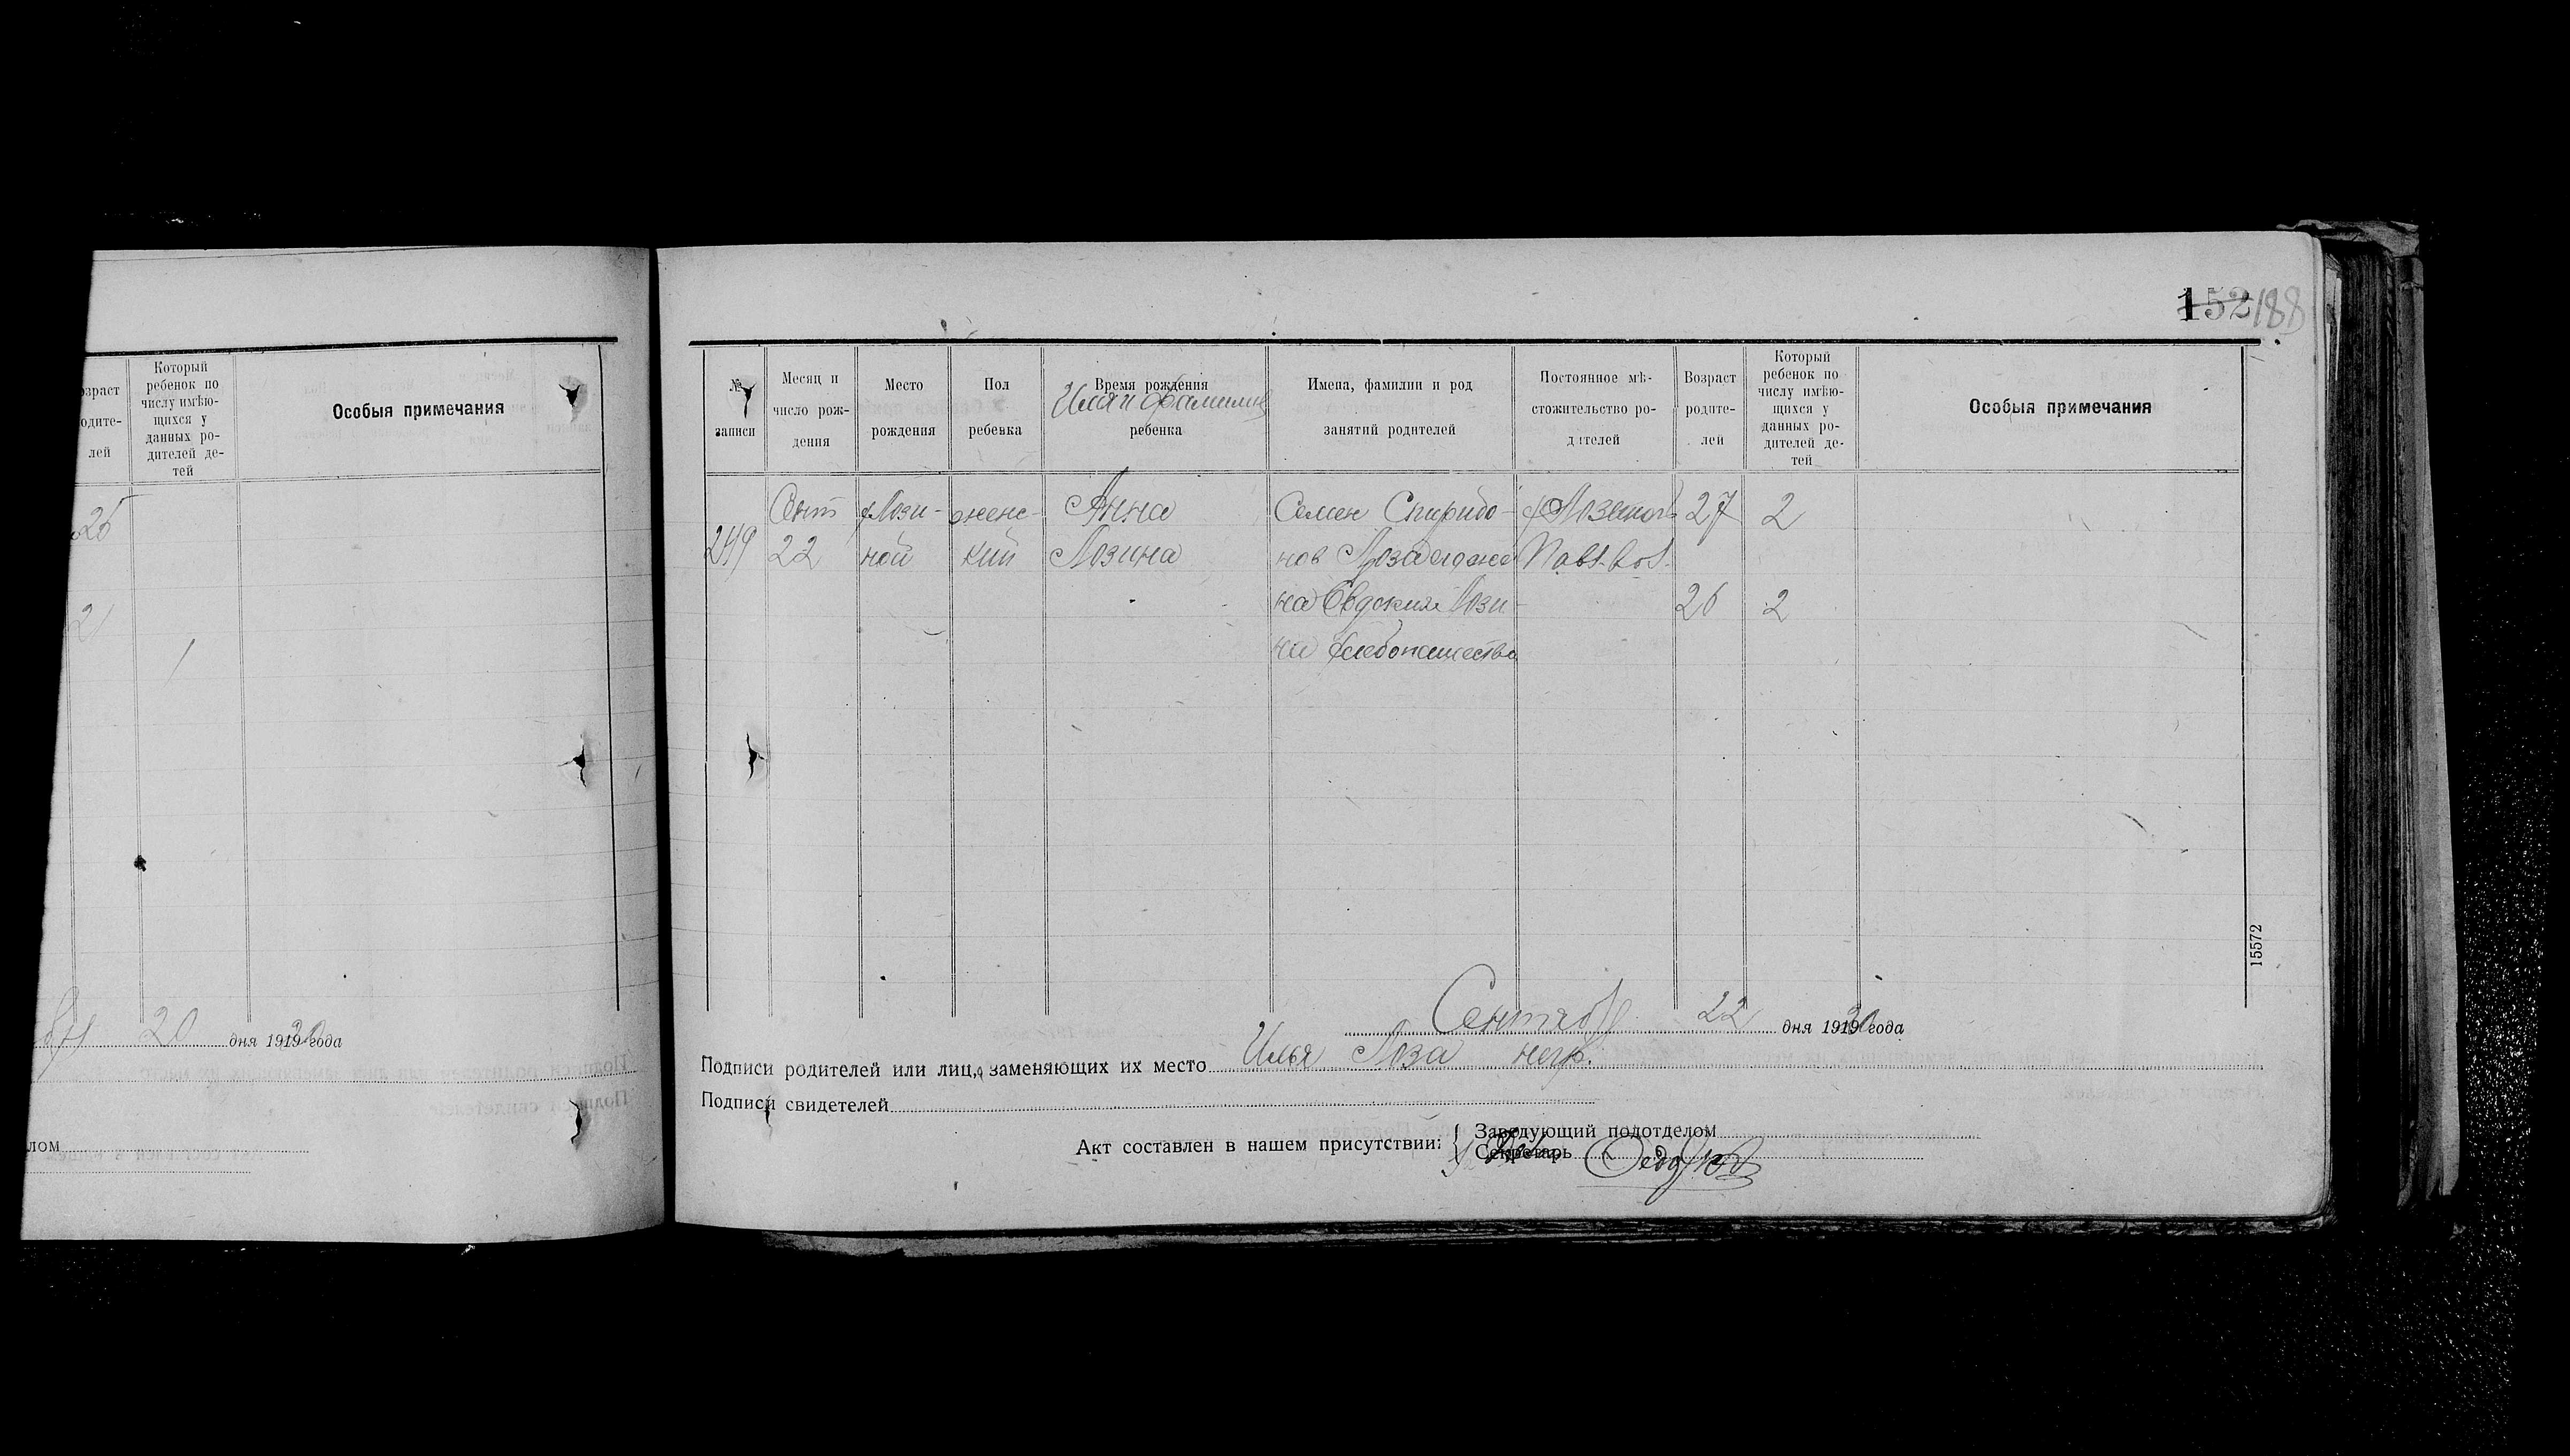 озраст
одите-
лей
Который
ребенок по
числу имѣю-
щихся у
данных ро-
дителей де-
тей
Особыя примечания
25
2
1
20 дня 1920 года
лом
152 188
№
записи
Месяц и
число рож-
дения
Место
рождения
Пол
ребенка
Время рождения
Имя и фамилия
ребенка
Имена, фамилии и род
занятий родителей
Постоянное мѣ-
стожительство ро-
дителей
Возраст
родите-
лей
Который
ребенок по
числу имѣю-
щихся у
данных ро-
дителей де-
тей
Особыя примечания
Сент Лози- женс- Анна Семен Спиридо- 27 2
249 22 ной кий Лозина нов Лоза и жена
на Евдокия Лози- 26 2
на хлебопашество
15572
22 дня 1920 года
Подписи родителей или лиц, заменяющих их место Илья Лоза негр.
Подписи свидетелей
Акт составлен в нашем присутствии: Заведующий подотделом
Секретарь